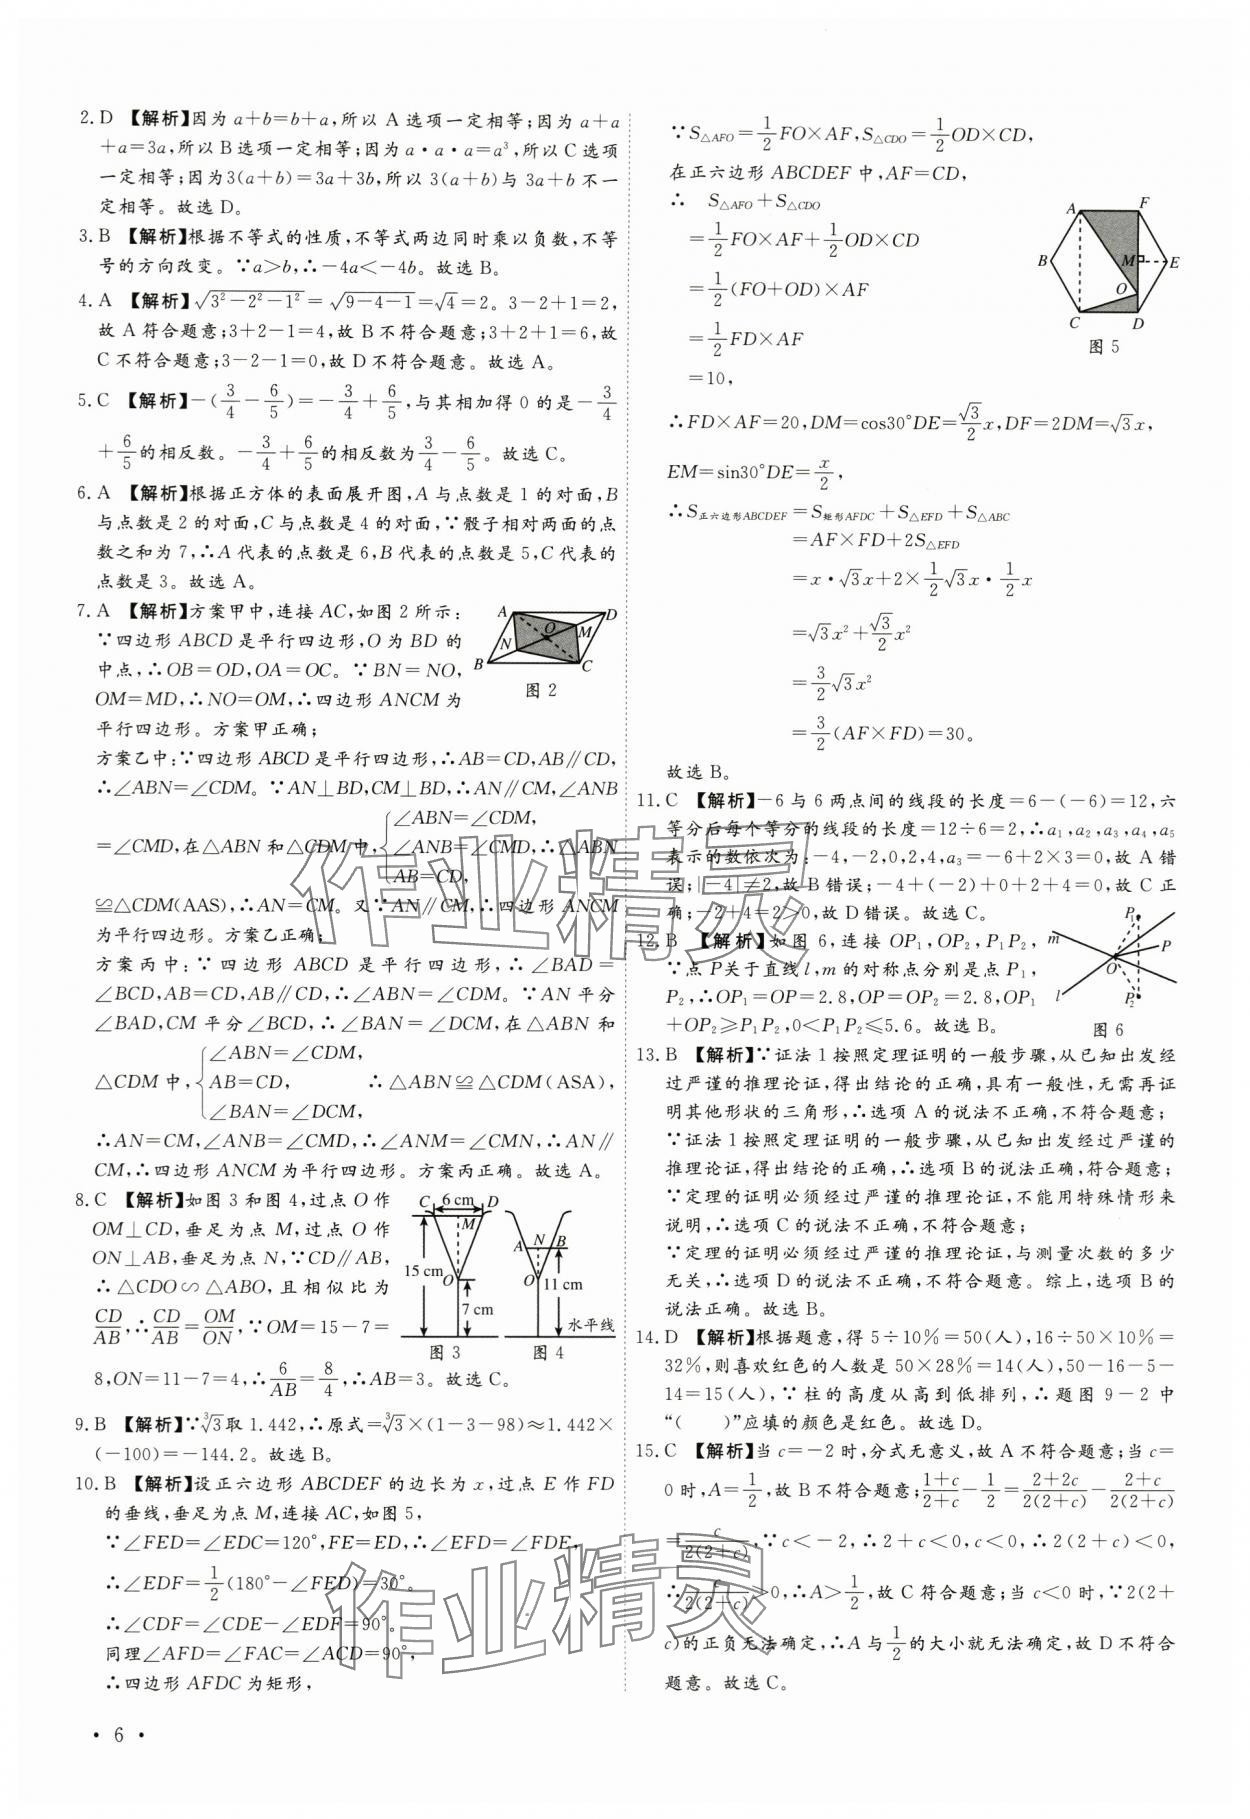 2. D 【解析】因为 a+b=b+a,所以 A 选项一定相等;因为 a+a
+a=3a,所以 B 选项一定相等;因为 a·a·a=a³,所以 C 选项
一定相等;因为3(a+b)=3a+3b,所以 3(a+b)与 3a+b 不一
定相等。故选 D。
3. B 【解析】根据不等式的性质,不等式两边同时乘以负数,不等
号的方向改变。∵a>b,∴-4a<-4b。故选 B。
4. A 【解析】√(3²-2²-1²)=√(9-4-1)=√4=2。3-2+1=2,
故 A 符合题意;3+2-1=4,故 B 不符合题意;3+2+1=6,故
C 不符合题意;3-2-1=0,故 D 不符合题意。故选 A。
5. C 【解析】-(3/4-6/5)=-3/4+6/5,与其相加得 0 的是-3/4
+6/5的相反数。-3/4+6/5的相反数为3/4-6/5。故选 C。
6. A 【解析】根据正方体的表面展开图,A 与点数是 1 的对面,B
与点数是 2 的对面,C 与点数是 4 的对面,∵骰子相对两面的点
数之和为 7,∴A 代表的点数是 6,B 代表的点数是 5,C 代表的
点数是 3。故选 A。
7. A 【解析】方案甲中,连接 AC,如图 2 所示:
∵四边形 ABCD 是平行四边形,O 为 BD 的
中点,∴OB=OD,OA=OC。∵BN=NO,
OM=MD,∴NO=OM,∴四边形 ANCM 为
平行四边形。方案甲正确;
A D O M N B C
图 2
方案乙中:∵四边形 ABCD 是平行四边形,∴AB=CD,AB∥CD,
∴∠ABN=∠CDM。∵AN⊥BD,CM⊥BD,∴AN∥CM,∠ANB
=∠CMD,在△ABN 和△CDM 中,{∠ABN=∠CDM,
∠ANB=∠CMD,∴△ABN
AB=CD,
≌△CDM(AAS),∴AN=CM。又∵AN∥CM,∴四边形 ANCM
为平行四边形。方案乙正确;
方案丙中:∵四边形 ABCD 是平行四边形,∴∠BAD=
∠BCD,AB=CD,AB∥CD,∴∠ABN=∠CDM。∵AN 平分
∠BAD,CM 平分∠BCD,∴∠BAN=∠DCM,在△ABN 和
△CDM 中,{∠ABN=∠CDM,
AB=CD, ∴△ABN≌△CDM(ASA),
∠BAN=∠DCM,
∴AN=CM,∠ANB=∠CMD,∴∠ANM=∠CMN,∴AN∥
CM,∴四边形 ANCM 为平行四边形。方案丙正确。故选 A。
8. C 【解析】如图 3 和图 4,过点 O 作
OM⊥CD,垂足为点 M,过点 O 作
ON⊥AB,垂足为点 N,∵CD∥AB,
∴△CDO∽△ABO,且相似比为
CD/AB,∴CD/AB=OM/ON,∵OM=15-7=
8,ON=11-7=4,∴6/AB=8/4,∴AB=3。故选 C。
C 6 cm D M 15 cm O 7 cm
图 3
A N B O 11 cm 水平线
图 4
9. B 【解析】∵³√3取 1.442,∴原式=³√3×(1-3-98)≈1.442×
(-100)=-144.2。故选 B。
10. B 【解析】设正六边形 ABCDEF 的边长为 x,过点 E 作 FD
的垂线,垂足为点 M,连接 AC,如图 5,
∵∠FED=∠EDC=120°,FE=ED,∴∠EFD=∠FDE,
∴∠EDF=1/2(180°-∠FED)=30°,
∴∠CDF=∠CDE-∠EDF=90°。
同理∠AFD=∠FAC=∠ACD=90°,
∴四边形 AFDC 为矩形,
∵S△AFO=1/2FO×AF,S△CDO=1/2OD×CD,
在正六边形 ABCDEF 中,AF=CD,
∴ S△AFO+S△CDO
=1/2FO×AF+1/2OD×CD
=1/2(FO+OD)×AF
=1/2FD×AF
=10,
A F B M E O C D
图 5
∴FD×AF=20,DM=cos30°DE=√3/2x,DF=2DM=√3x,
EM=sin30°DE=x/2,
∴S正六边形ABCDEF=S矩形AFDC+S△EFD+S△ABC
=AF×FD+2S△EFD
=x·√3x+2×1/2√3x·1/2x
=√3x²+√3/2x²
=3/2√3x²
=3/2(AF×FD)=30。
故选 B。
11. C 【解析】-6 与 6 两点间的线段的长度=6-(-6)=12,六
等分后每个等分的线段的长度=12÷6=2,∴a₁,a₂,a₃,a₄,a₅
表示的数依次为:-4,-2,0,2,4,a₃=-6+2×3=0,故 A 错
误;|-4|≠2,故 B 错误;-4+(-2)+0+2+4=0,故 C 正
确;-2+4=2>0,故 D 错误。故选 C。
12. B 【解析】如图 6,连接 OP₁,OP₂,P₁P₂,
∵点 P关于直线 l,m 的对称点分别是点 P₁,
P₂,∴OP₁=OP=2.8,OP=OP₂=2.8,OP₁
+OP₂≥P₁P₂,0<P₁P₂≤5.6。故选 B。
P₁ m P O l P₂
图 6
13. B 【解析】∵证法 1 按照定理证明的一般步骤,从已知出发经
过严谨的推理论证,得出结论的正确,具有一般性,无需再证
明其他形状的三角形,∴选项 A 的说法不正确,不符合题意;
∵证法 1 按照定理证明的一般步骤,从已知出发经过严谨的
推理论证,得出结论的正确,∴选项 B 的说法正确,符合题意;
∵定理的证明必须经过严谨的推理论证,不能用特殊情形来
说明,∴选项 C 的说法不正确,不符合题意;
∵定理的证明必须经过严谨的推理论证,与测量次数的多少
无关,∴选项 D 的说法不正确,不符合题意。综上,选项 B 的
说法正确。故选 B。
14. D 【解析】根据题意,得 5÷10%=50(人),16÷50×10%=
32%,则喜欢红色的人数是 50×28%=14(人),50-16-5-
14=15(人),∵柱的高度从高到低排列,∴题图 9-2 中
“( )”应填的颜色是红色。故选 D。
15. C 【解析】当 c=-2 时,分式无意义,故 A 不符合题意;当 c=
0 时,A=1/2,故 B 不符合题意;(1+c)/(2+c)-1/2=(2+2c)/(2(2+c))-(2+c)/(2(2+c))
=c/(2(2+c)),∵c<-2,∴2+c<0,c<0,∴2(2+c)<0,
∴c/(2(2+c))>0,∴A>1/2,故 C 符合题意;当 c<0 时,∵2(2+
c)的正负无法确定,∴A 与1/2的大小就无法确定,故 D 不符合
题意。故选 C。
· 6 ·
作业精灵
作业精灵